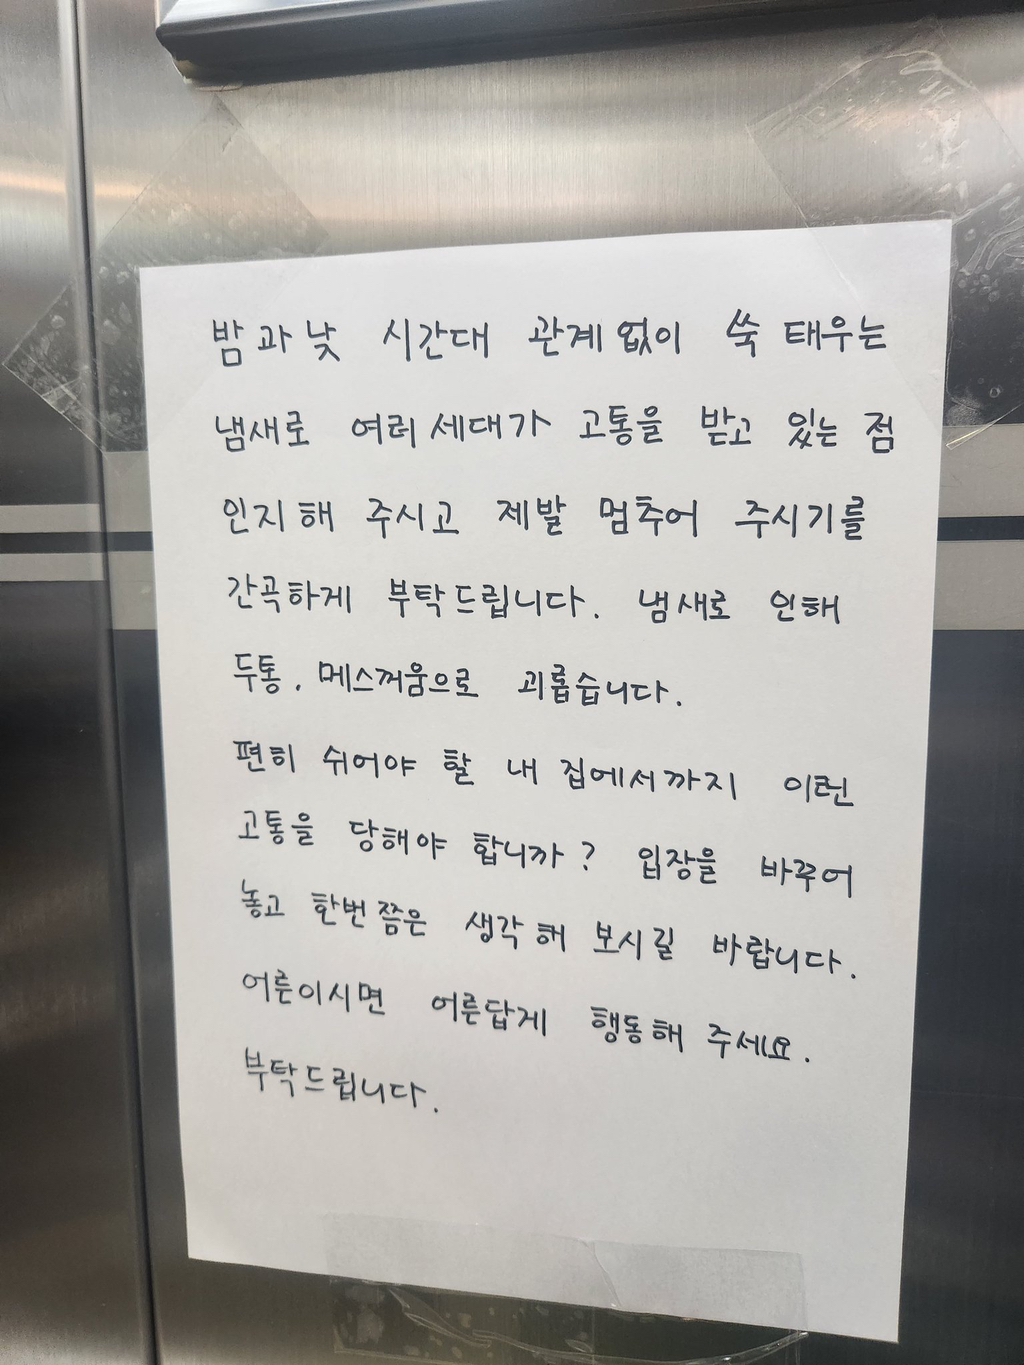 밤과 낮 시간대 관계없이 쑥 태우는
냄새로 여러 세대가 고통을 받고 있는 점
인지해 주시고 제발 멈추어 주시기를
간곡하게 부탁드립니다. 냄새로 인해
두통, 메스꺼움으로 괴롭습니다.
편히 쉬어야 할 내 집에서까지 이런
고통을 당해야 합니까? 입장을 바꾸어
놓고 한번쯤은 생각해 보시길 바랍니다.
어른이시면 어른답게 행동해 주세요.
부탁드립니다.